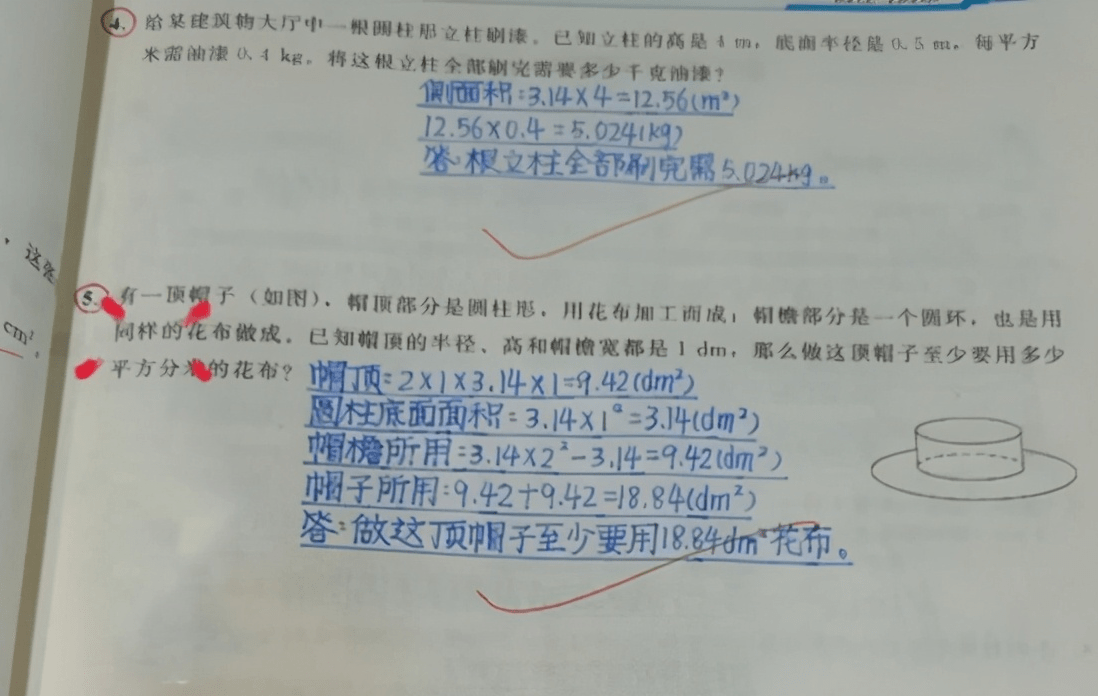 4. 给某建筑物大厅中一根圆柱形立柱刷漆。已知立柱的高是 4 m，底面半径是 0.5 m。每平方
米需油漆 0.4 kg。将这根立柱全部刷完需要多少千克油漆？
侧面积：3.14×4=12.56(m²)
12.56×0.4=5.024(kg)
答：根立柱全部刷完需5.024kg。
这张
cm²。
5. 有一顶帽子（如图），帽顶部分是圆柱形，用花布加工而成；帽檐部分是一个圆环，也是用
同样的花布做成。已知帽顶的半径、高和帽檐宽都是 1 dm，那么做这顶帽子至少要用多少
平方分米的花布？
帽顶：2×1×3.14×1=9.42(dm²)
圆柱底面面积：3.14×1²=3.14(dm²)
帽檐所用：3.14×2²-3.14=9.42(dm²)
帽子所用：9.42+9.42=18.84(dm²)
答：做这顶帽子至少要用18.84dm²花布。